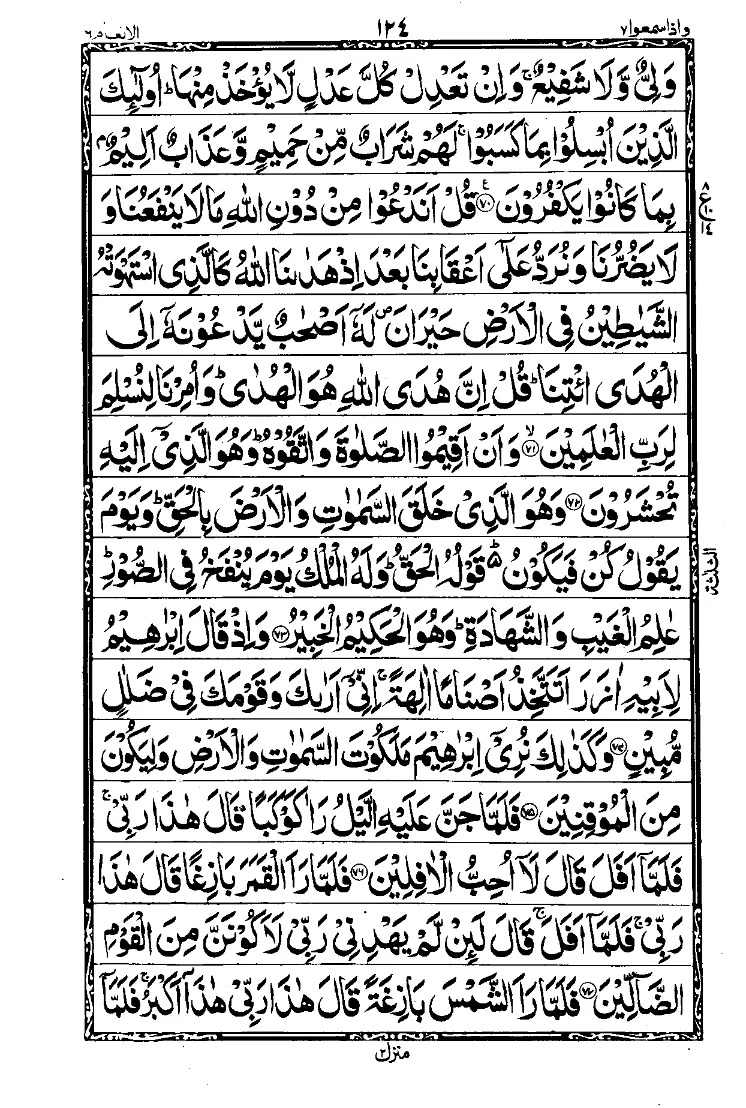 واذاسمعوا٧ ١٢٤ الانعام٦
وَلِیٌّ وَّلَا شَفِیْعٌ ۚ وَاِنْ تَعْدِلْ كُلَّ عَدْلٍ لَّا یُؤْخَذْ مِنْهَا ؕ اُولٰٓئِكَ
الَّذِیْنَ اُبْسِلُوْا بِمَا كَسَبُوْا ۚ لَهُمْ شَرَابٌ مِّنْ حَمِیْمٍ وَّعَذَابٌ اَلِیْمٌۢ
بِمَا كَانُوْا یَكْفُرُوْنَ ۧ﴿۷۰﴾ قُلْ اَنَدْعُوْا مِنْ دُوْنِ اللّٰهِ مَا لَا یَنْفَعُنَا وَ
ع ٨ ١٠ ١٤
لَا یَضُرُّنَا وَنُرَدُّ عَلٰۤی اَعْقَابِنَا بَعْدَ اِذْ هَدٰىنَا اللّٰهُ كَالَّذِی اسْتَهْوَتْهُ
الشَّیٰطِیْنُ فِی الْاَرْضِ حَیْرَانَ ۪ لَهٗۤ اَصْحٰبٌ یَّدْعُوْنَهٗۤ اِلَی
الْهُدَی ائْتِنَا ؕ قُلْ اِنَّ هُدَی اللّٰهِ هُوَ الْهُدٰی ؕ وَاُمِرْنَا لِنُسْلِمَ
لِرَبِّ الْعٰلَمِیْنَ ۙ﴿۷۱﴾ وَاَنْ اَقِیْمُوا الصَّلٰوةَ وَاتَّقُوْهُ ؕ وَهُوَ الَّذِیْۤ اِلَیْهِ
تُحْشَرُوْنَ ﴿۷۲﴾ وَهُوَ الَّذِیْ خَلَقَ السَّمٰوٰتِ وَالْاَرْضَ بِالْحَقِّ ؕ وَیَوْمَ
یَقُوْلُ كُنْ فَیَكُوْنُ ۬ؕ قَوْلُهُ الْحَقُّ ؕ وَلَهُ الْمُلْكُ یَوْمَ یُنْفَخُ فِی الصُّوْرِ ؕ
الثلثة
عٰلِمُ الْغَیْبِ وَالشَّهَادَةِ ؕ وَهُوَ الْحَكِیْمُ الْخَبِیْرُ ﴿۷۳﴾ وَاِذْ قَالَ اِبْرٰهِیْمُ
لِاَبِیْهِ اٰزَرَ اَتَتَّخِذُ اَصْنَامًا اٰلِهَةً ۚ اِنِّیْۤ اَرٰىكَ وَقَوْمَكَ فِیْ ضَلٰلٍ
مُّبِیْنٍ ﴿۷۴﴾ وَكَذٰلِكَ نُرِیْۤ اِبْرٰهِیْمَ مَلَكُوْتَ السَّمٰوٰتِ وَالْاَرْضِ وَلِیَكُوْنَ
مِنَ الْمُوْقِنِیْنَ ﴿۷۵﴾ فَلَمَّا جَنَّ عَلَیْهِ الَّیْلُ رَاٰ كَوْكَبًا ۚ قَالَ هٰذَا رَبِّیْ ۚ
فَلَمَّاۤ اَفَلَ قَالَ لَاۤ اُحِبُّ الْاٰفِلِیْنَ ﴿۷۶﴾ فَلَمَّا رَاَ الْقَمَرَ بَازِغًا قَالَ هٰذَا
رَبِّیْ ۚ فَلَمَّاۤ اَفَلَ قَالَ لَئِنْ لَّمْ یَهْدِنِیْ رَبِّیْ لَاَكُوْنَنَّ مِنَ الْقَوْمِ
الضَّآلِّیْنَ ﴿۷۷﴾ فَلَمَّا رَاَ الشَّمْسَ بَازِغَةً قَالَ هٰذَا رَبِّیْ هٰذَاۤ اَكْبَرُ ۚ فَلَمَّاۤ
منزل٢